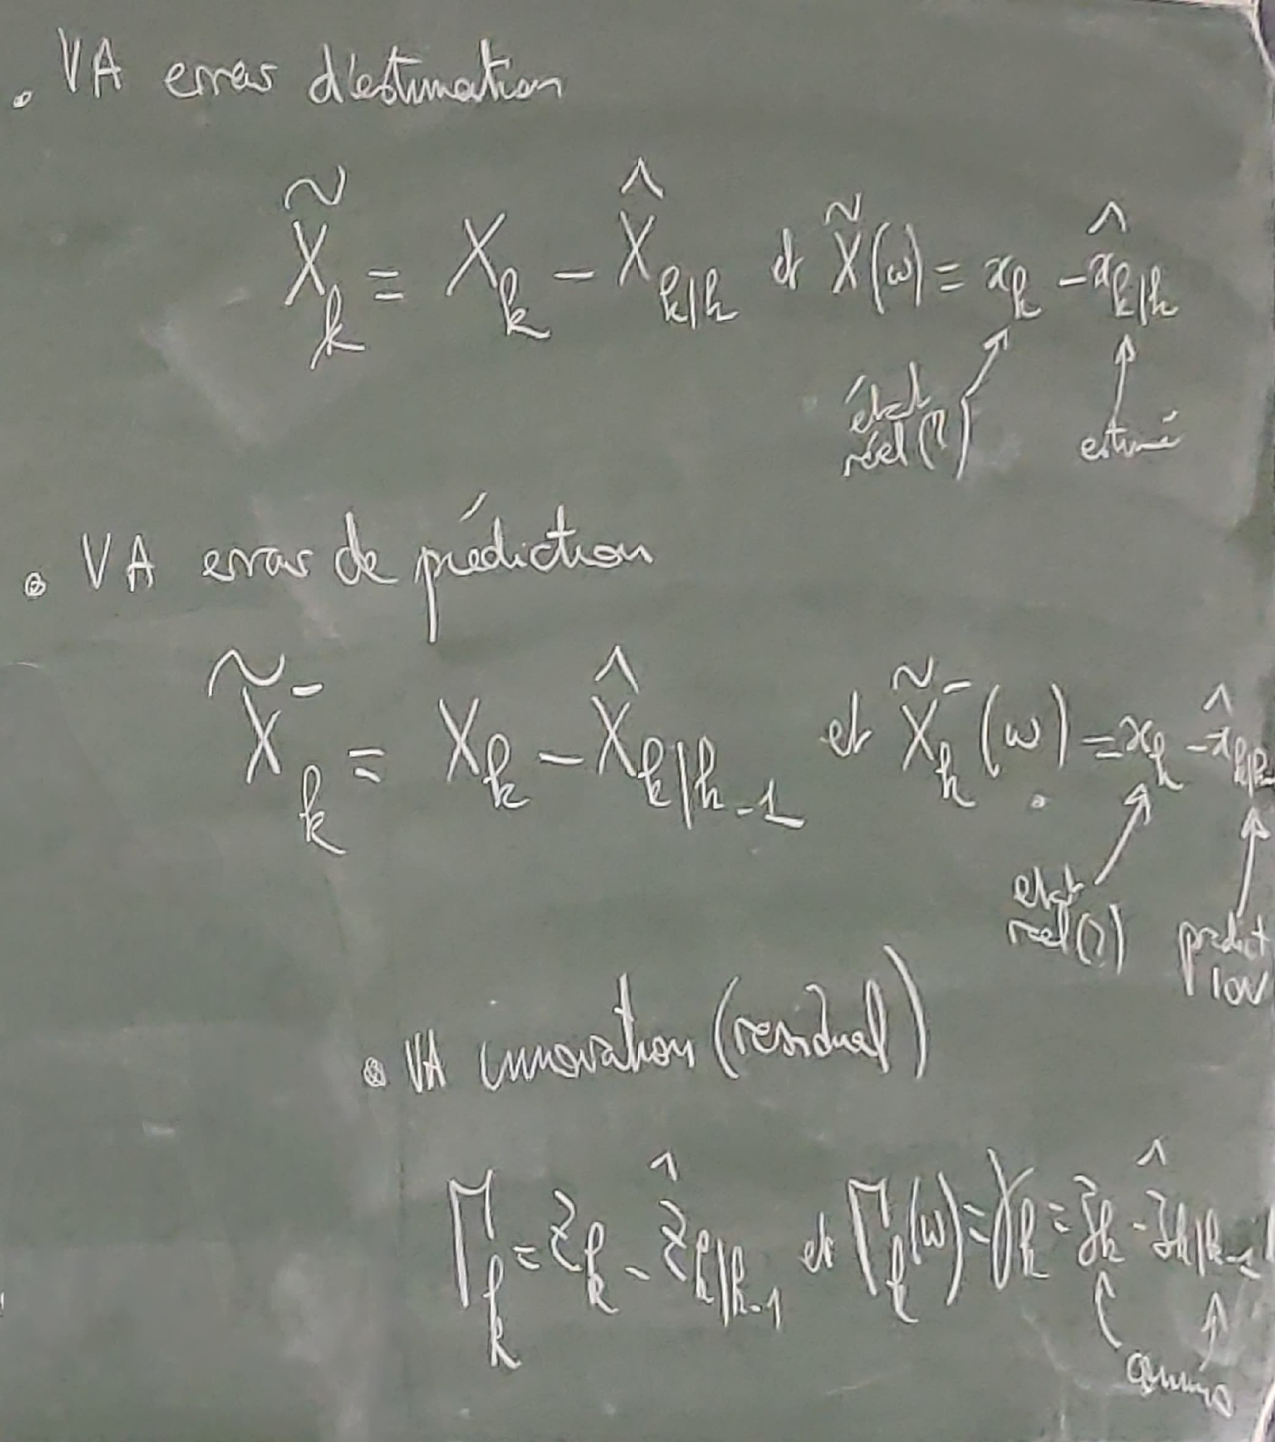 • VA erreur d'estimation
X̃_k = X_k - X̂_{k|k} et X̃(ω) = x_k - x̂_{k|k}
état réel (?) estimé
• VA erreur de prédiction
X̃⁻_k = X_k - X̂_{k|k-1} et X̃⁻_k(ω) = x_k - x̂_{k|k-
état réel (?) prédict
ion
• VA innovation (residual)
Γ_k = Z_k - Ẑ_{k|k-1} et Γ_k(ω) = γ_k = z_k - ẑ_{k|k-1}
connus